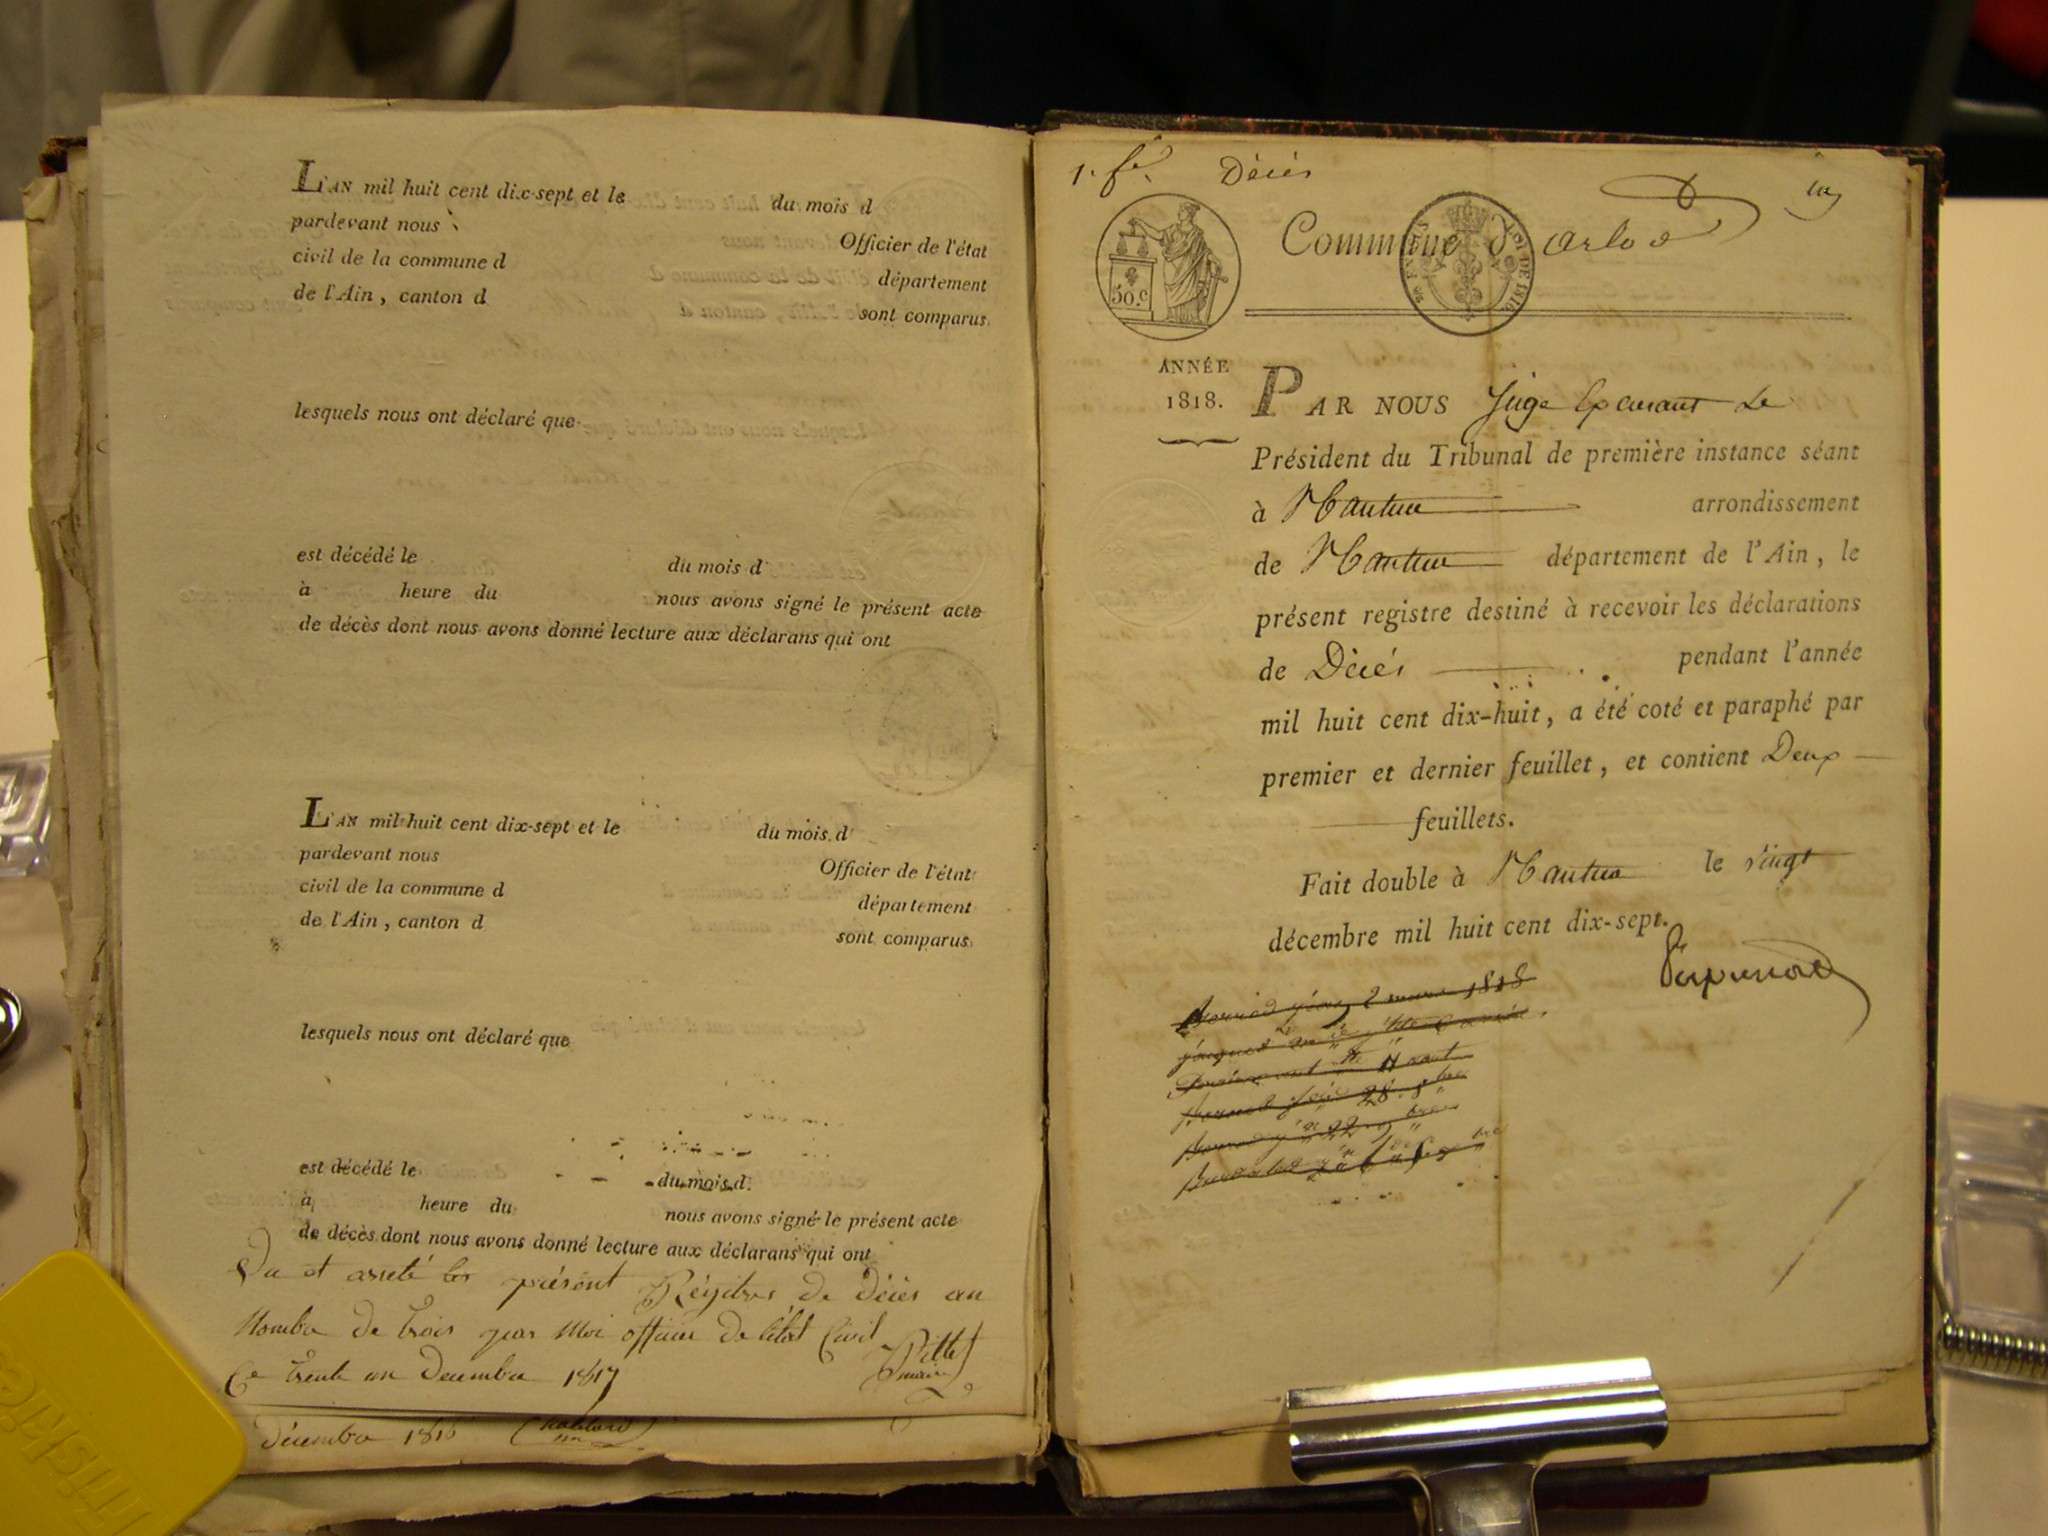 L'AN mil huit cent dix-sept et le du mois d
pardevant nous Officier de l'état
civil de la commune d département
de l'Ain, canton d sont comparus
lesquels nous ont déclaré que
est décédé le du mois d
à heure du nous avons signé le présent acte
de décès dont nous avons donné lecture aux déclarans qui ont
L'AN mil huit cent dix-sept et le du mois d
pardevant nous Officier de l'état
civil de la commune d département
de l'Ain, canton d sont comparus
lesquels nous ont déclaré que
est décédé le du mois d
à heure du nous avons signé le présent acte
de décès dont nous avons donné lecture aux déclarans qui ont
Vu et arreté les présent Régitres de décès au
Nombre de trois par Moi officier de l'état Civil
Ce trente un Decembre 1817
maire
décembre 1816
1.er fet. Décès
50.c
LOI DE 1816
Commune d'arlod
ANNÉE
1818.
PAR NOUS Juge Exerçant Le
Président du Tribunal de première instance séant
à Nantua arrondissement
de Nantua département de l'Ain, le
présent registre destiné à recevoir les déclarations
de Décès pendant l'année
mil huit cent dix-huit, a été coté et paraphé par
premier et dernier feuillet, et contient Deux
feuillets.
Fait double à Nantua le vingt
décembre mil huit cent dix-sept.
2 mars 1818